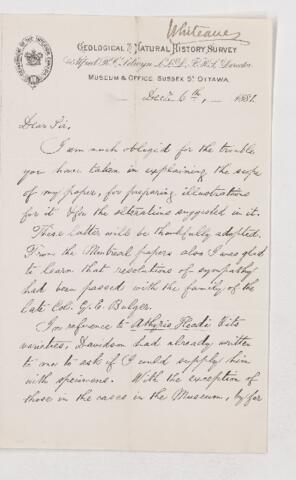 Whiteaves
DEPARTMENT OF THE INTERIOR CANADA
GEOLOGICAL & NATURAL HISTORY SURVEY
Alfred R. C. Selwyn L.L.D., F.R.S. Director.
MUSEUM & OFFICE SUSSEX ST OTTAWA
Decr. 6th, 1881.
Dear Sir,
I am much obliged for the trouble
you have taken in explaining the supt
of my paper, for preparing illustrations
for it & for the alterations suggested in it.
These latter will be thankfully adopted.
From the Montreal papers also I was glad
to learn that resolutions of sympathy
had been passed with the family of the
late Col. G. E. Bulger.
In reference to Athyris Headi & its
varieties, Davidson had already written
to me to ask if I could supply him
with specimens. With the exception of
those in the cases in the Museum, by far